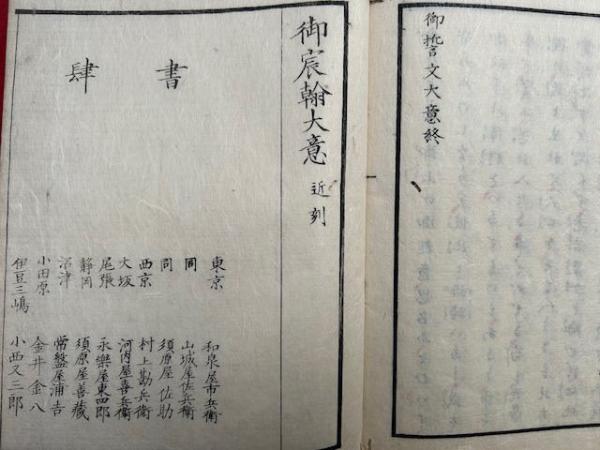 御誓文大意終
御宸翰大意 近刻
書肆
東京 和泉屋市兵衛
同 山城屋佐兵衛
同 須原屋佐助
西京 村上勘兵衛
大坂 河内屋喜兵衛
尾張 永樂屋東四郎
静岡 須原屋善蔵
沼津 常盤屋浦吉
小田原 金井金八
伊豆三嶋 小西又三郎